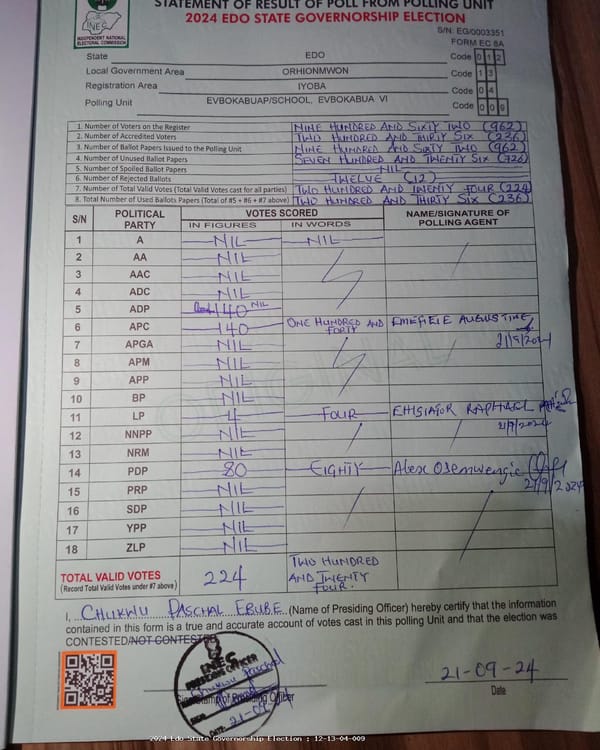 STATEMENT OF RESULT OF POLL FROM POLLING UNIT
2024 EDO STATE GOVERNORSHIP ELECTION
INEC
INDEPENDENT NATIONAL ELECTORAL COMMISSION
S/N: EG/0003351
FORM EC 8A
State EDO Code 0 1 2
Local Government Area ORHIONMWON Code 1 3
Registration Area IYOBA Code 0 4
Polling Unit EVBOKABUAP/SCHOOL, EVBOKABUA VI Code 0 0 9
1. Number of Voters on the Register NINE HUNDRED AND SIXTY TWO (962)
2. Number of Accredited Voters TWO HUNDRED AND THIRTY SIX (236)
3. Number of Ballot Papers Issued to the Polling Unit NINE HUNDRED AND SIXTY TWO (962)
4. Number of Unused Ballot Papers SEVEN HUNDRED AND TWENTY SIX (726)
5. Number of Spoiled Ballot Papers NIL
6. Number of Rejected Ballots TWELVE (12)
7. Number of Total Valid Votes (Total Valid Votes cast for all parties) TWO HUNDRED AND TWENTY FOUR (224)
8. Total Number of Used Ballots Papers (Total of #5 + #6 + #7 above) TWO HUNDRED AND THIRTY SIX (236)
S/N POLITICAL PARTY VOTES SCORED NAME/SIGNATURE OF POLLING AGENT
IN FIGURES IN WORDS
1 A NIL NIL
2 AA NIL
3 AAC NIL
4 ADC NIL
5 ADP 140 NIL
6 APC 140 ONE HUNDRED AND FORTY EMEFIELE AUGUSTINE
21/9/2024
7 APGA NIL
8 APM NIL
9 APP NIL
10 BP NIL
11 LP 4 FOUR EHISIATOR RAPHAEL
21/9/2024
12 NNPP NIL
13 NRM NIL
14 PDP 80 EIGHTY Alex Osemwengie
21/9/2024
15 PRP NIL
16 SDP NIL
17 YPP NIL
18 ZLP NIL
TOTAL VALID VOTES 224 TWO HUNDRED AND TWENTY FOUR.
(Record Total Valid Votes under #7 above)
I, CHUKWU PASCHAL EBUBE (Name of Presiding Officer) hereby certify that the information
contained in this form is a true and accurate account of votes cast in this polling Unit and that the election was
CONTESTED/NOT CONTESTED
INEC
PRESIDING OFFICER
Chukwu Paschal
SIGN
DATE 21-09-24
Presiding Officer
21-09-24
Date
2024 Edo State Governorship Election : 12-13-04-009